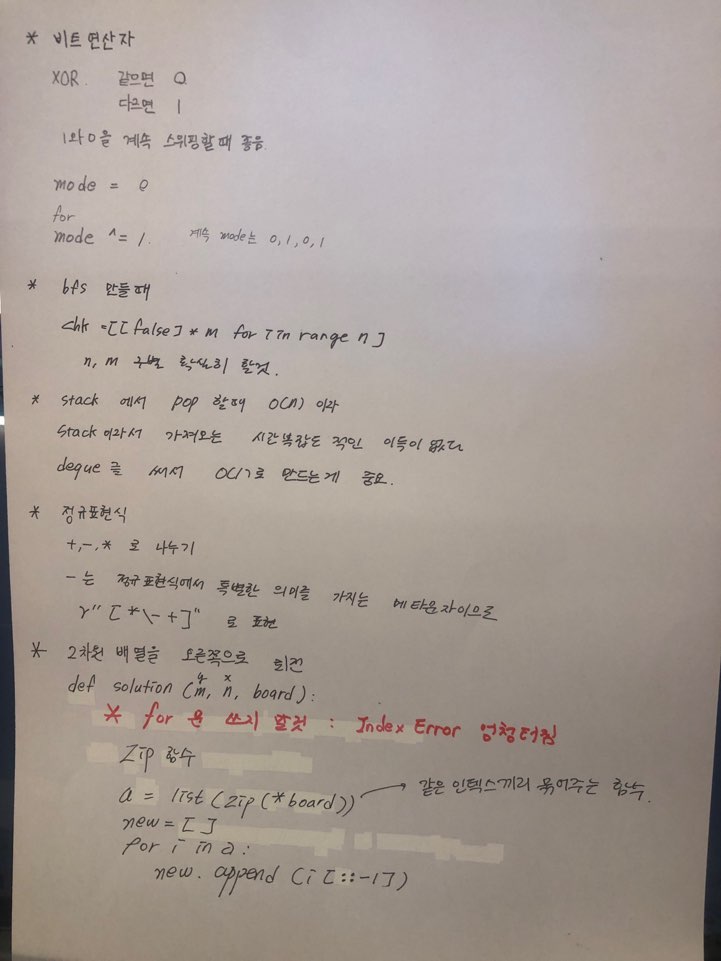 * 비트 연산자
XOR. 같으면 0
다르면 1
1와 0을 계속 스위핑할때 좋음.
mode = 0
for
mode ^= 1. 계속 mode는 0, 1, 0, 1
* bfs 만들때
chk =[[false] * m for i in range n]
n, m 구별 확실히 할것.
* stack 에서 pop 할때 O(n) 이라
stack이라서 가져오는 시간복잡도 적인 이득이 없다
deque를 써서 O(1)로 만드는게 중요.
* 정규표현식
+, -, * 로 나누기
- 는 정규표현식에서 특별한 의미를 가지는 메타문자이므로
r"[*\-+]" 로 표현
* 2차원 배열을 오른쪽으로 회전
y x
def solution (m, n, board):
* for 문 쓰지 말것 : Index Error 엄청터짐
Zip 함수
a = list (zip (*board)) → 같은 인텍스끼리 묶어주는 함수.
new = []
for i in a:
new. append (i [::-1])